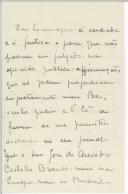 Em homenagem á verdade
e á justiça e para que não
passem em julgado na
opinião publica affirmações
que só podem prejudicar
injustamente meu Pae,
venho pedir a V. Exª a
fineza de me permittir
declarar no seu jornal
que o sr. José de Azevedo
Castello Branco, nem na
nem no